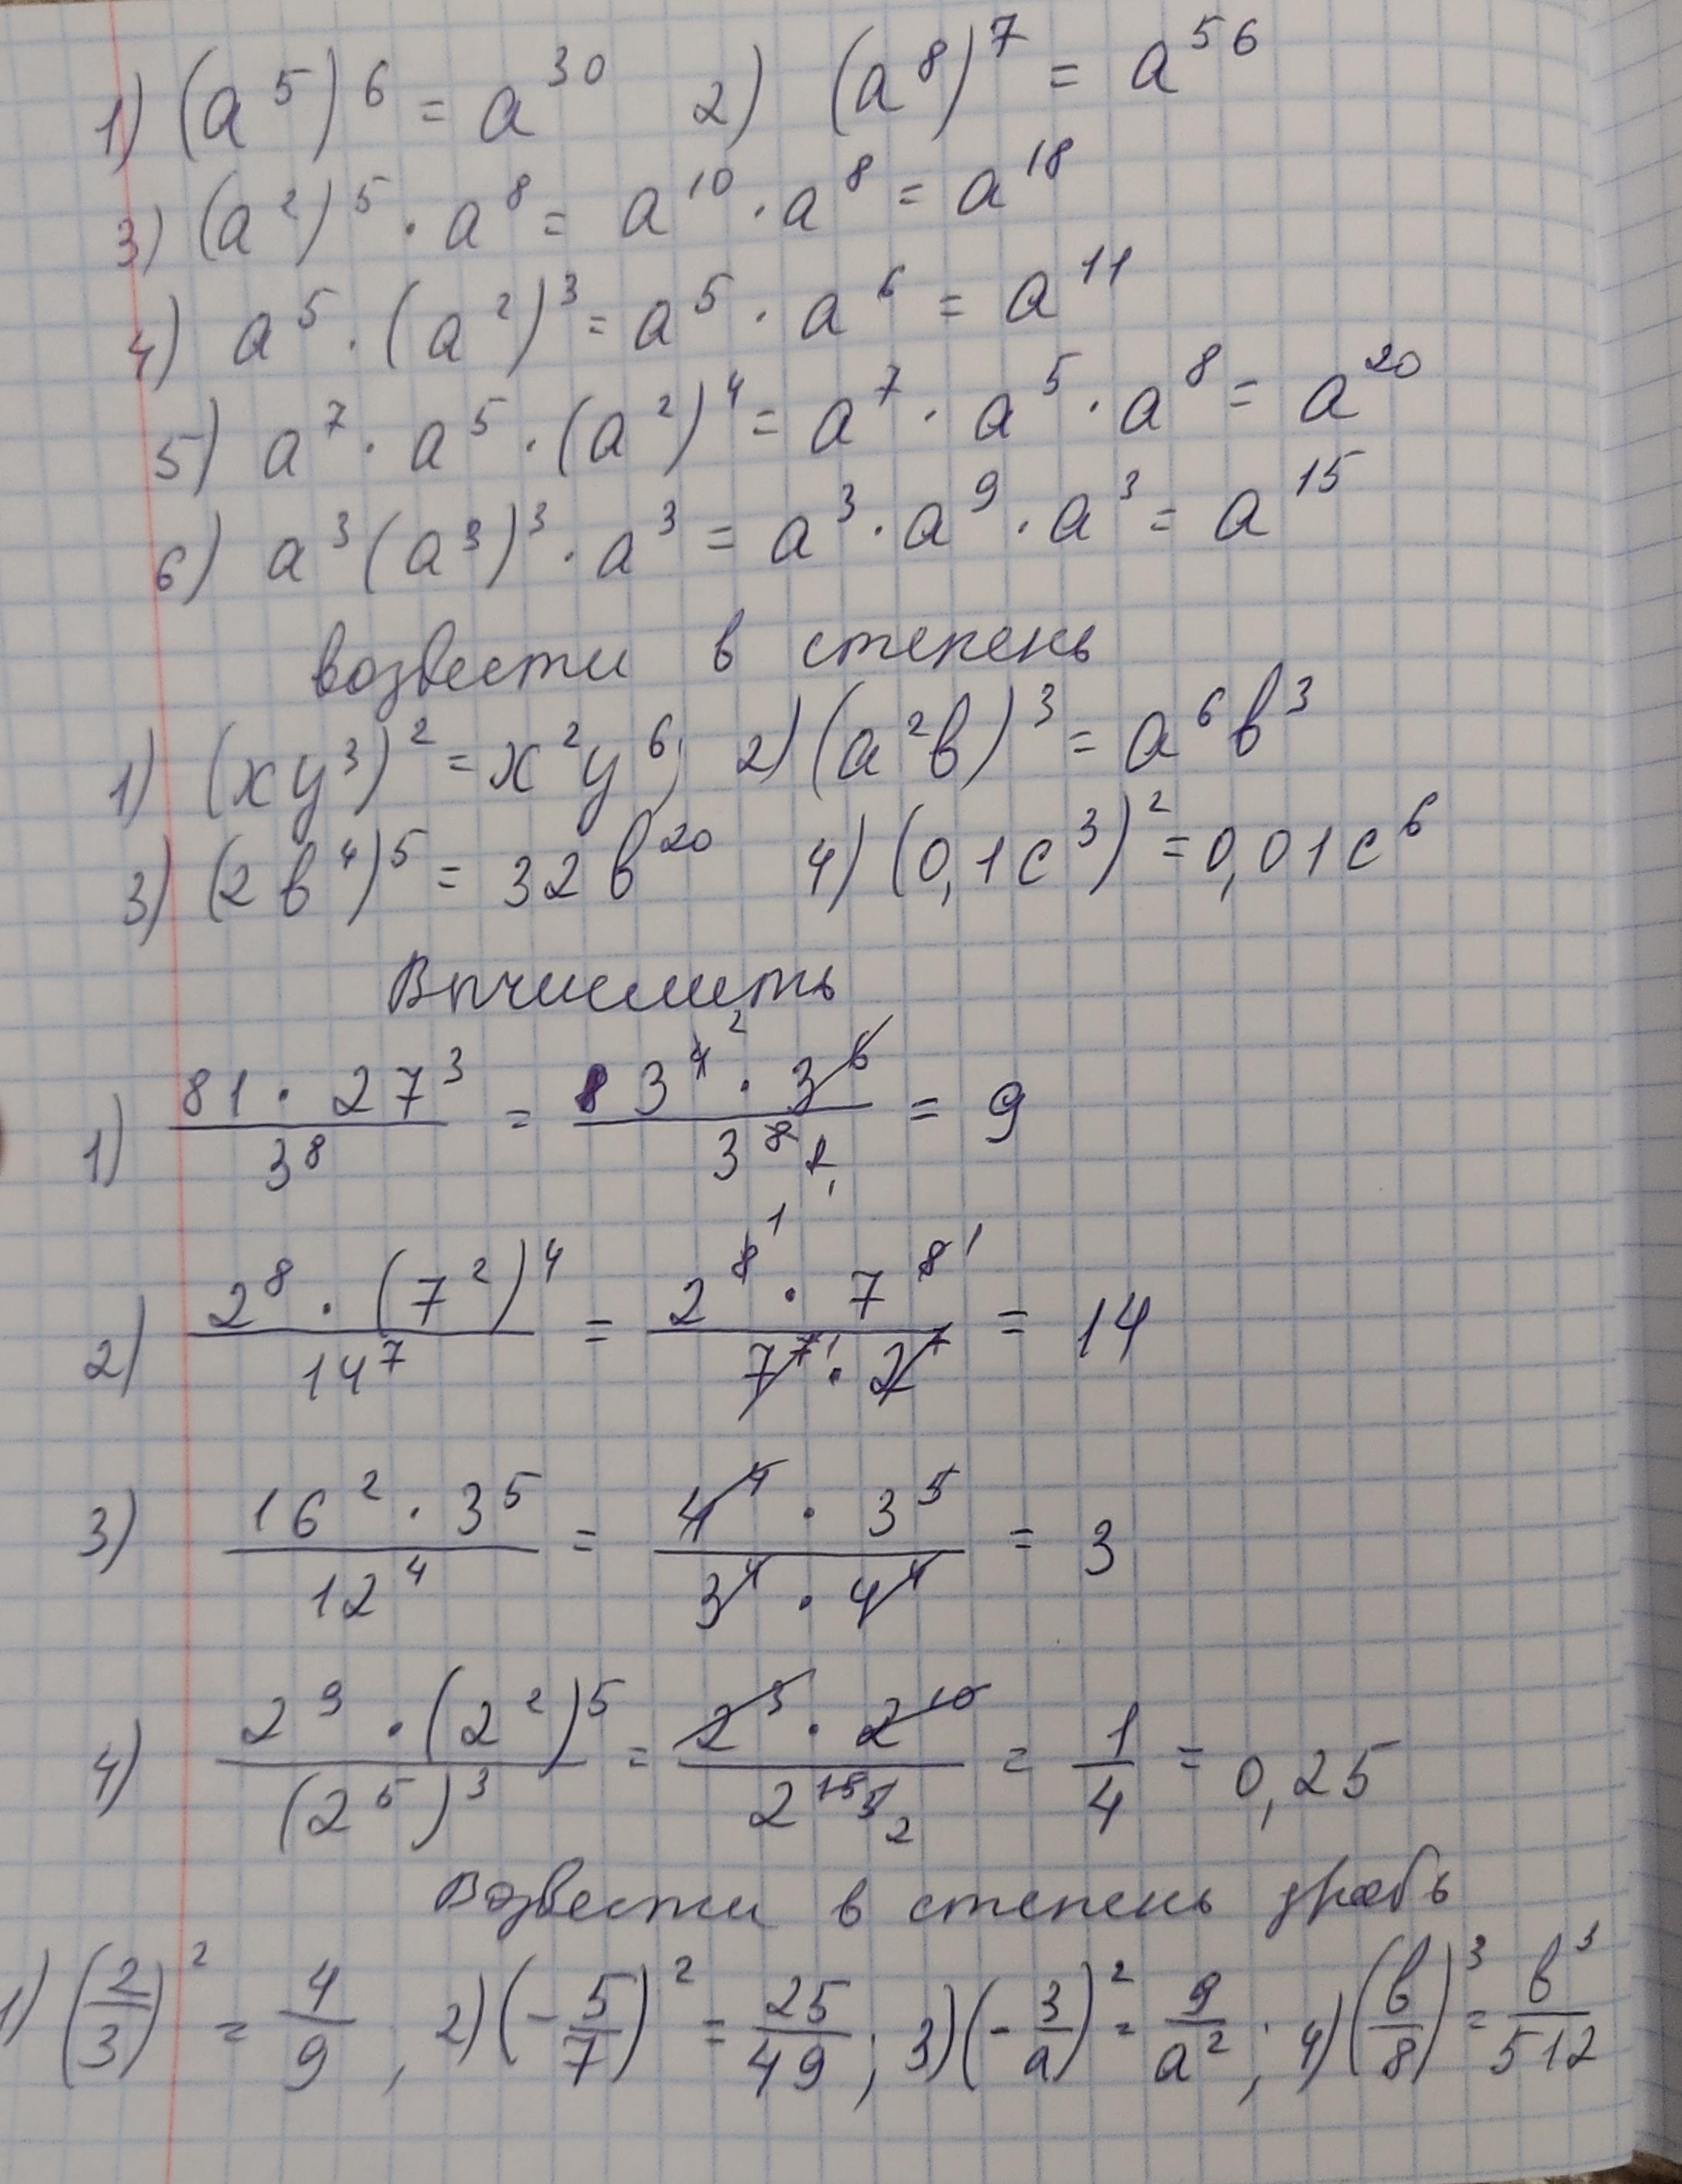 1) (a⁵)⁶ = a³⁰ 2) (a⁸)⁷ = a⁵⁶
3) (a²)⁵ · a⁸ = a¹⁰ · a⁸ = a¹⁸
4) a⁵ · (a²)³ = a⁵ · a⁶ = a¹¹
5) a⁷ · a⁵ · (a²)⁴ = a⁷ · a⁵ · a⁸ = a²⁰
6) a³(a³)³ · a³ = a³ · a⁹ · a³ = a¹⁵
возвести в степень
1) (xy³)² = x²y⁶; 2) (a²b)³ = a⁶b³
3) (2b⁴)⁵ = 32b²⁰ 4) (0,1c³)² = 0,01c⁶
Вычислить
1) (81 · 27³)/3⁸ = (3⁴ · 3⁶)/3⁸ = 9
2) (2⁸ · (7²)⁴)/14⁷ = (2⁸ · 7⁸)/(7⁷ · 2⁷) = 14
3) (16² · 3⁵)/12⁴ = (4⁴ · 3⁵)/(3⁴ · 4⁴) = 3
4) (2³ · (2²)⁵)/(2⁵)³ = (2³ · 2¹⁰)/2¹⁵ = 1/4 = 0,25
Возвести в степень дробь
1) (2/3)² = 4/9, 2) (-5/7)² = 25/49; 3) (-3/a)² = 9/a²; 4) (b/8)³ = b³/512